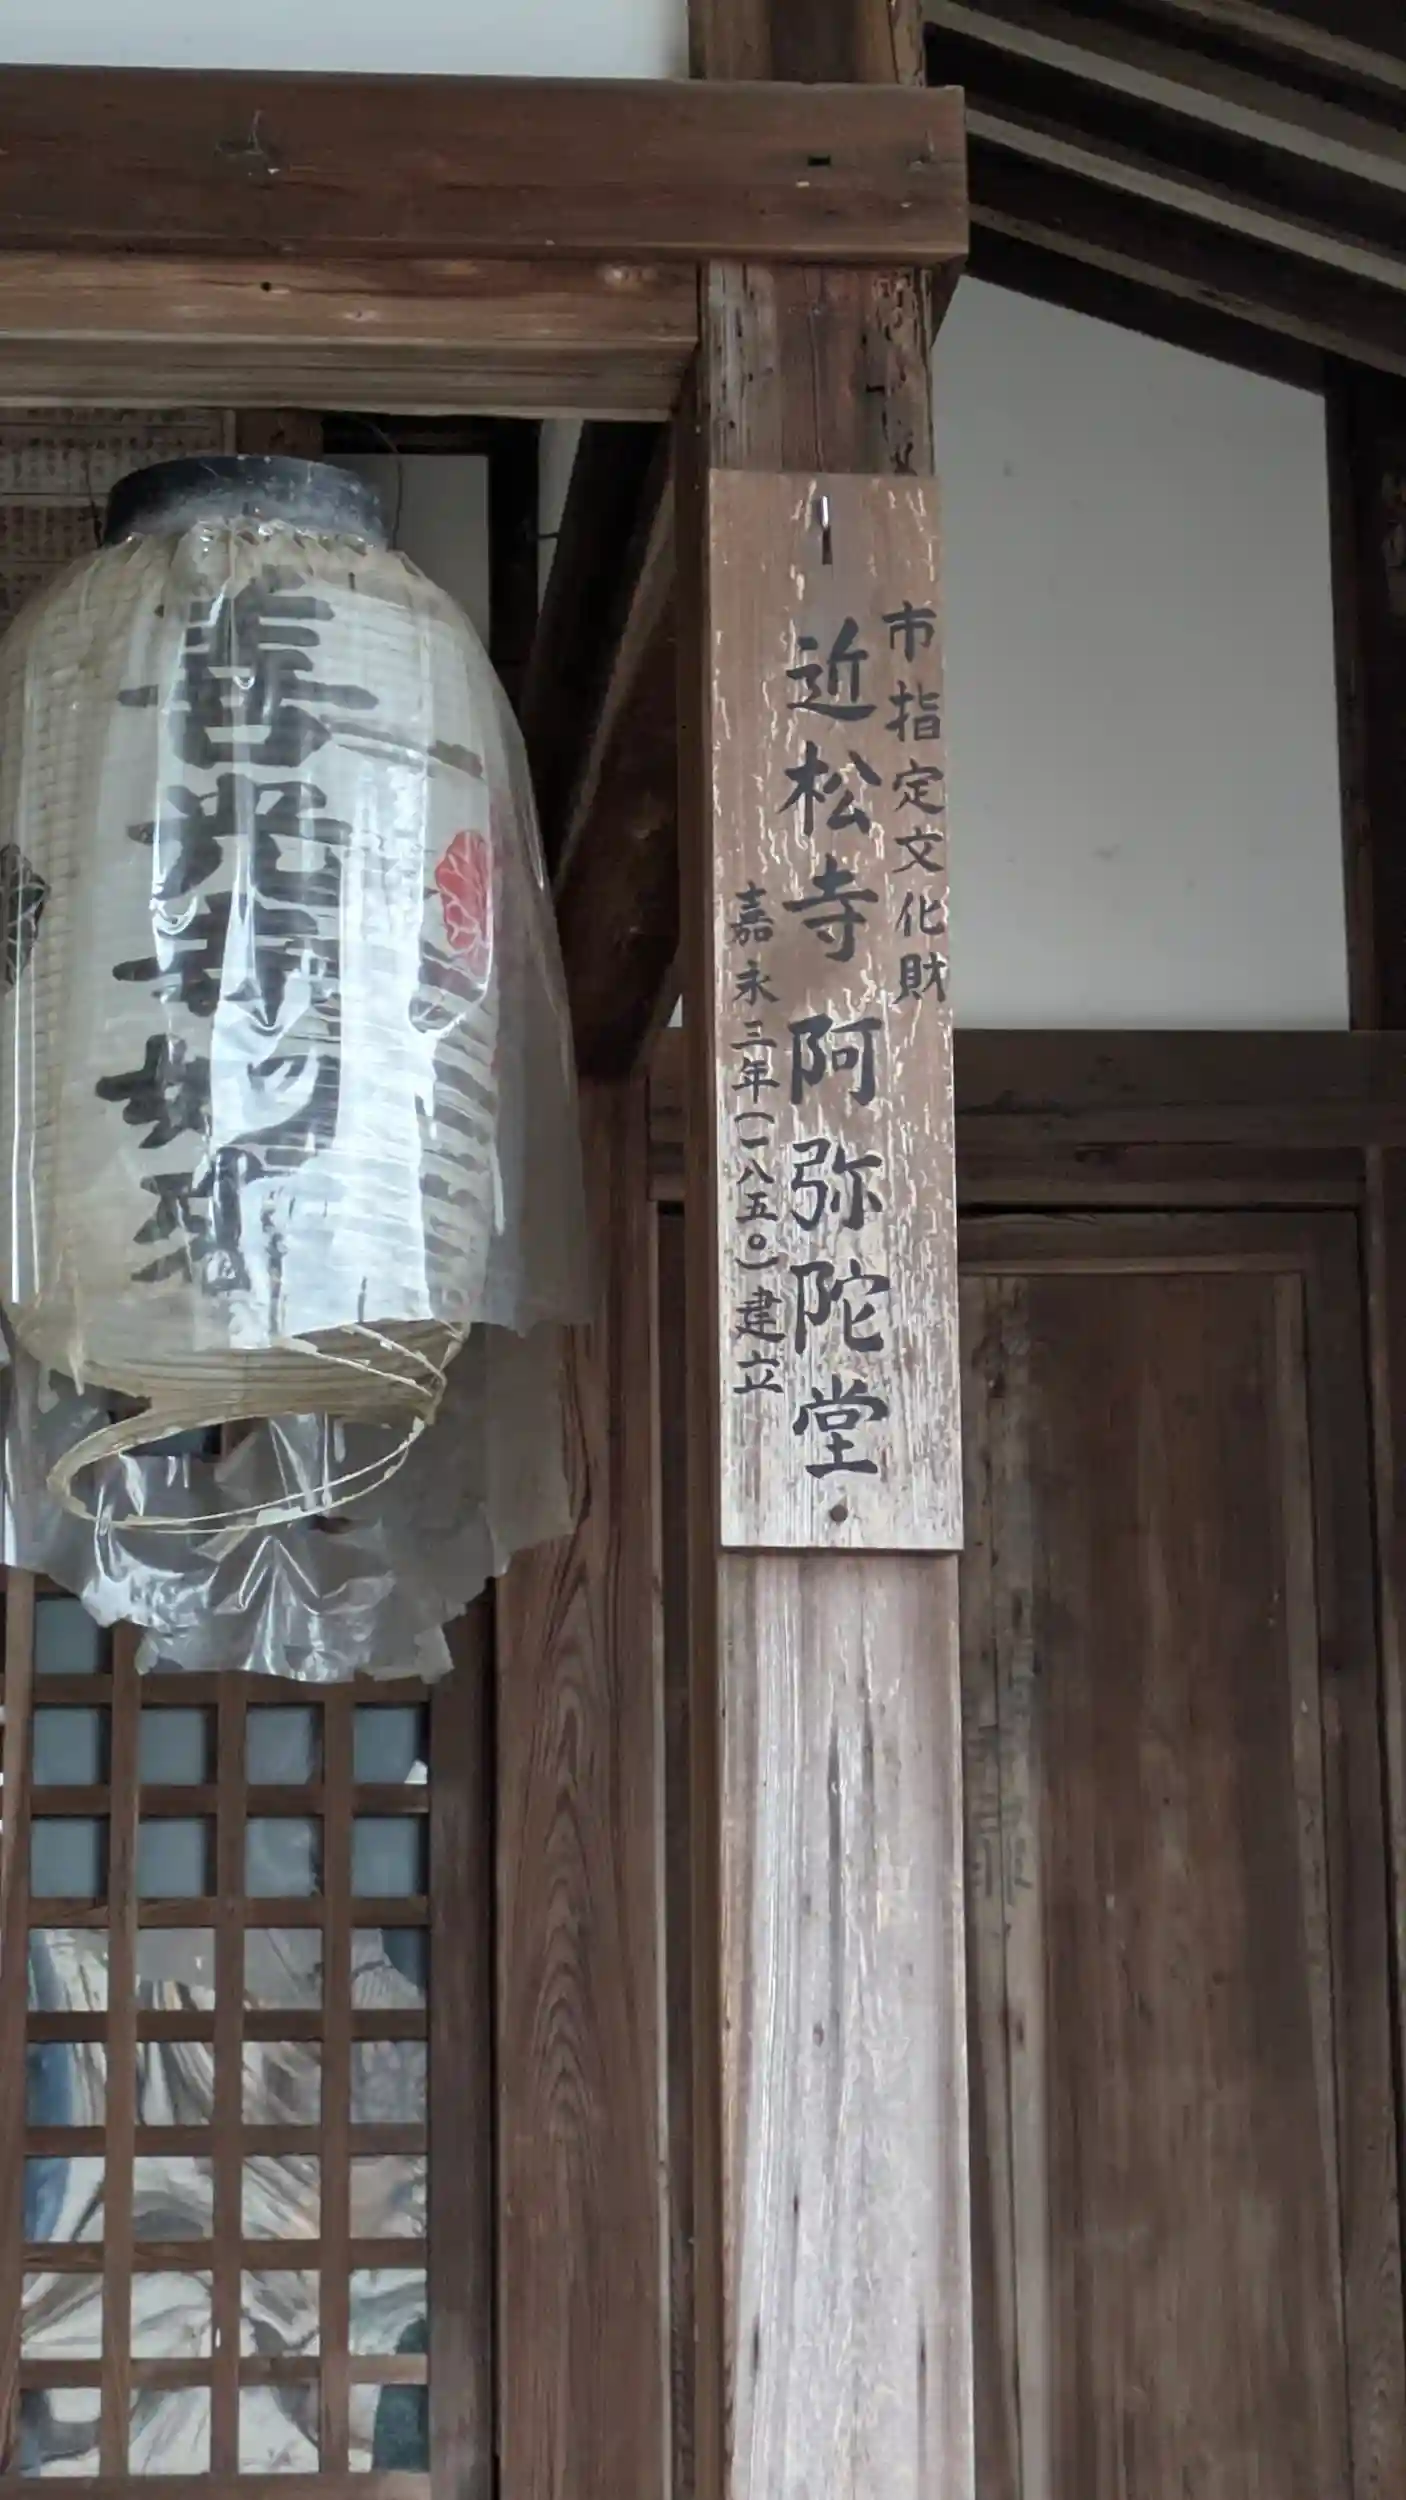 市指定文化財
近松寺 阿弥陀堂
嘉永三年(一八五〇)建立
善光寺如来